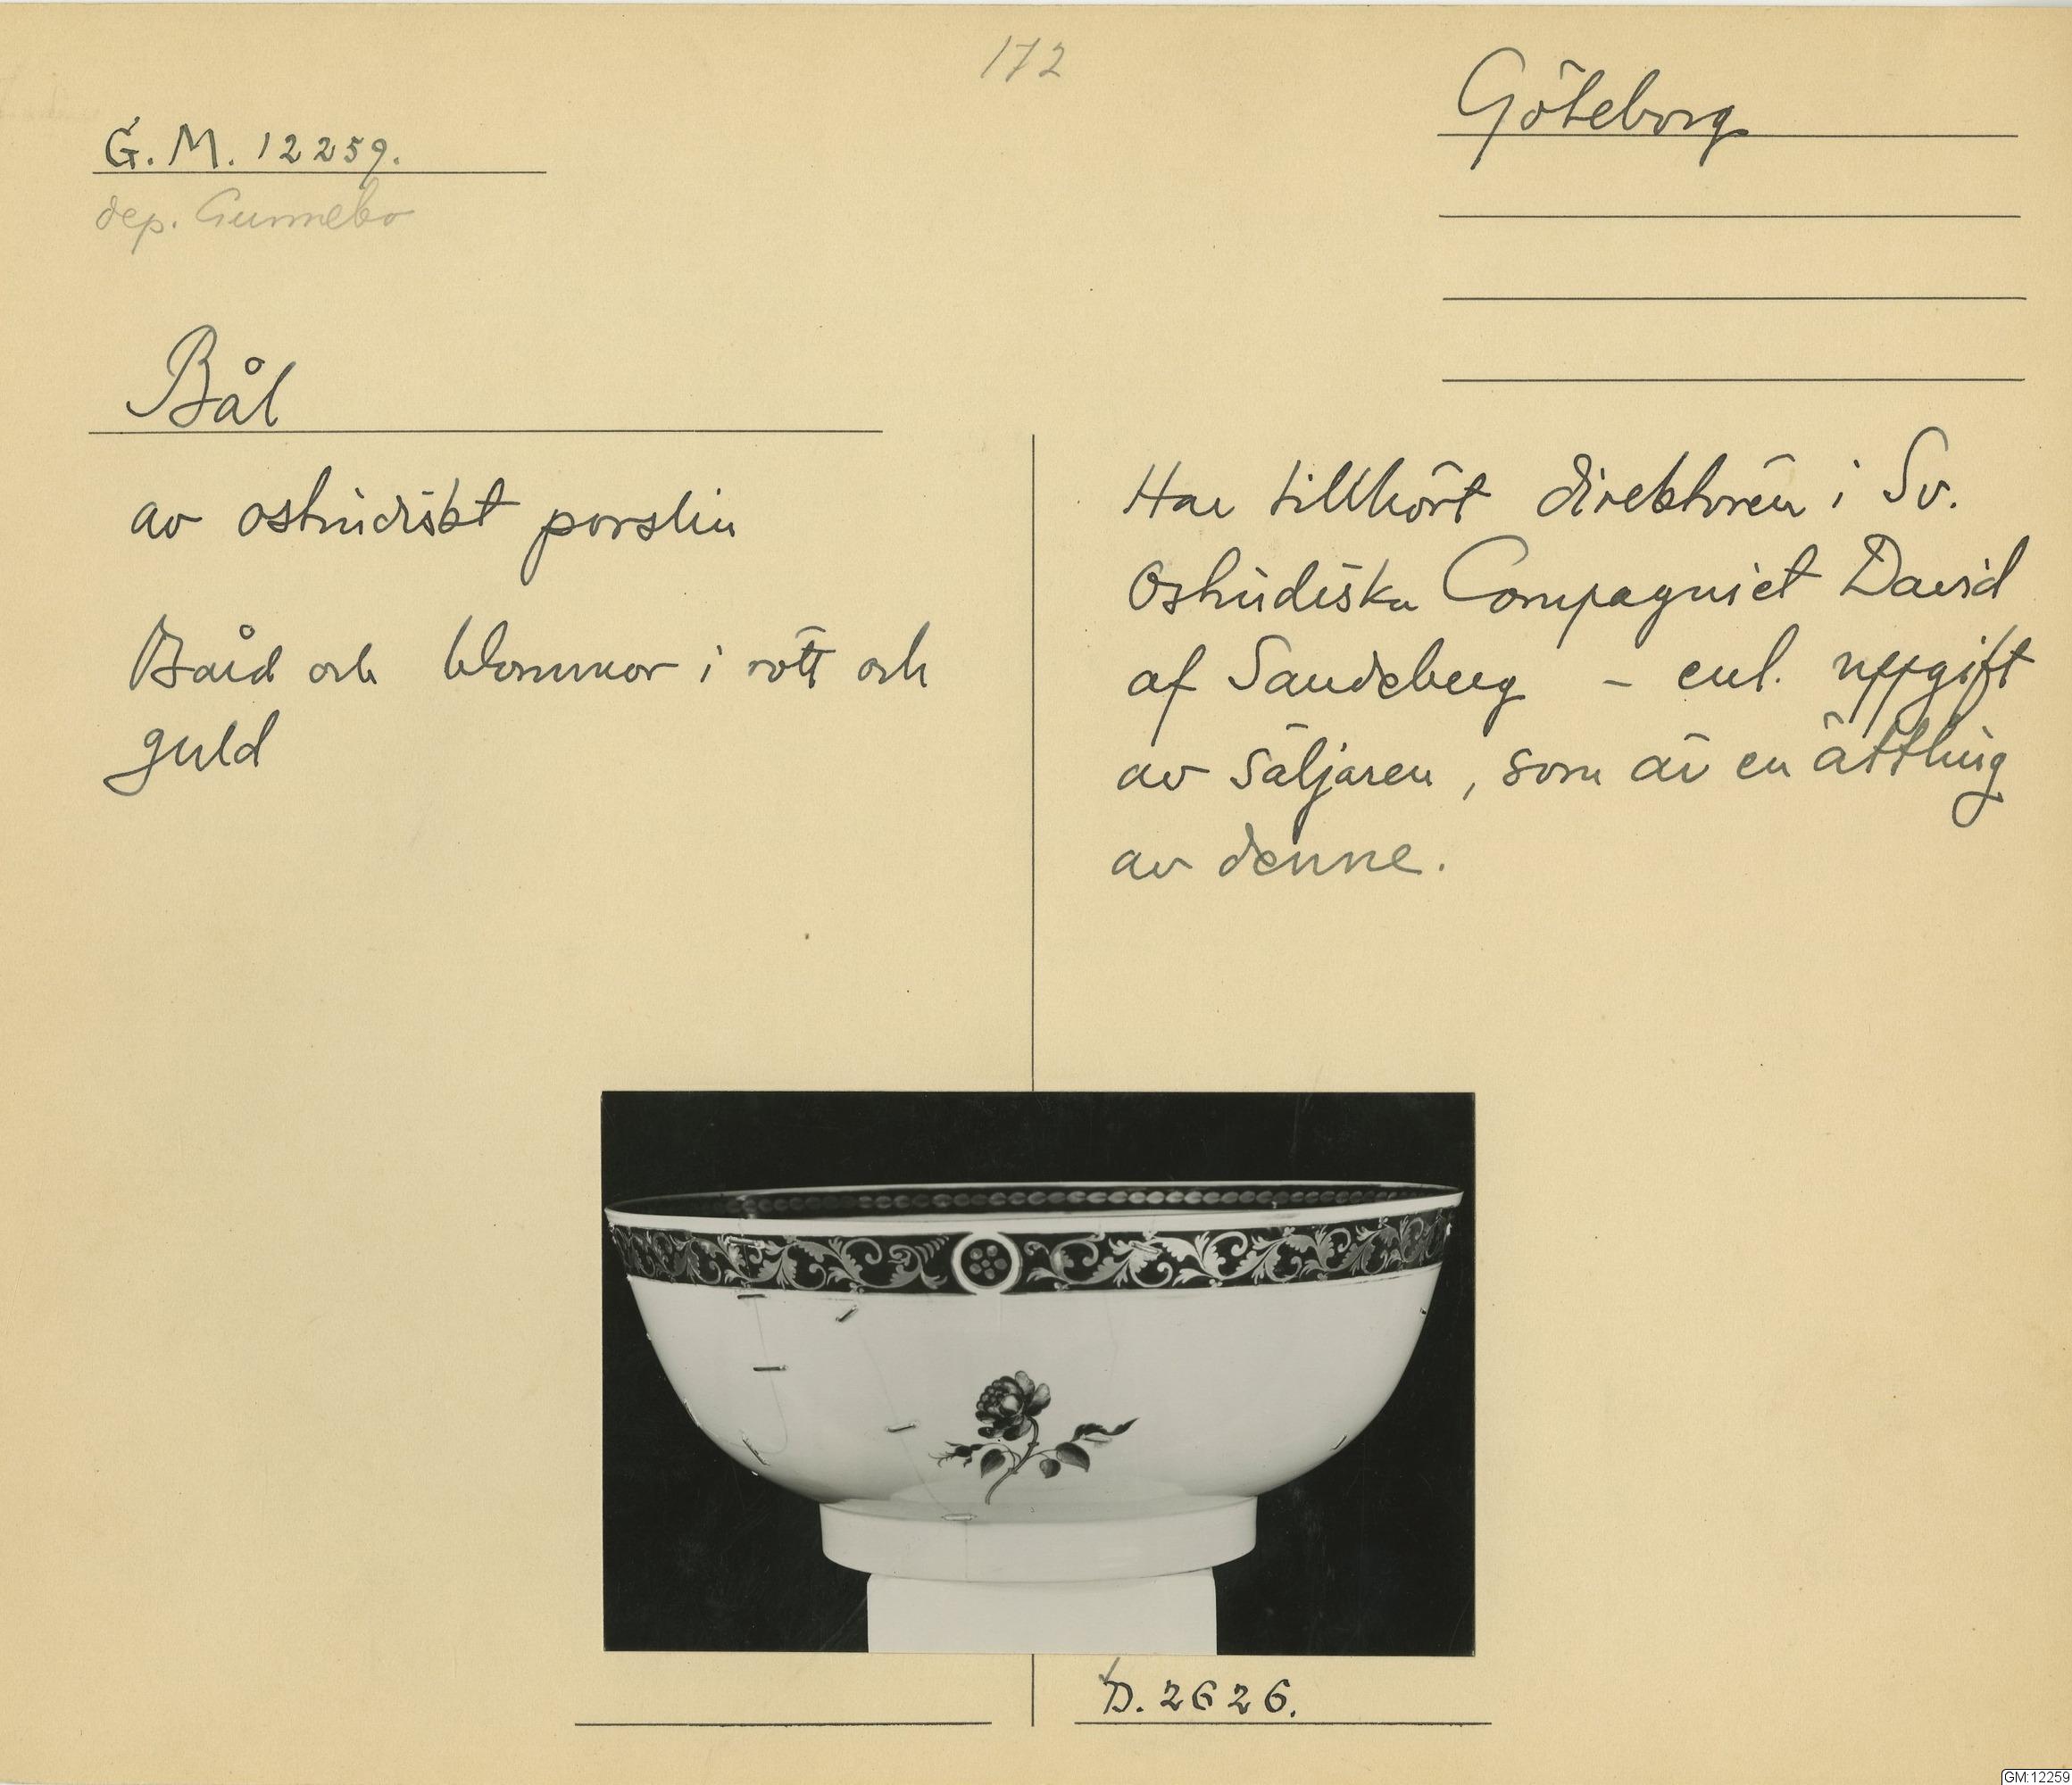 172
Göteborg
G.M. 12259.
dep. Gunnebo
Bål
av ostindiskt porslin
Bård och blommor i rött och
guld
Har tillhört direktören i Sv.
Ostindiska Compagniet David
af Sandeberg – enl. uppgift
av säljaren, som är en ättling
av denne.
D. 2626.
GM:12259